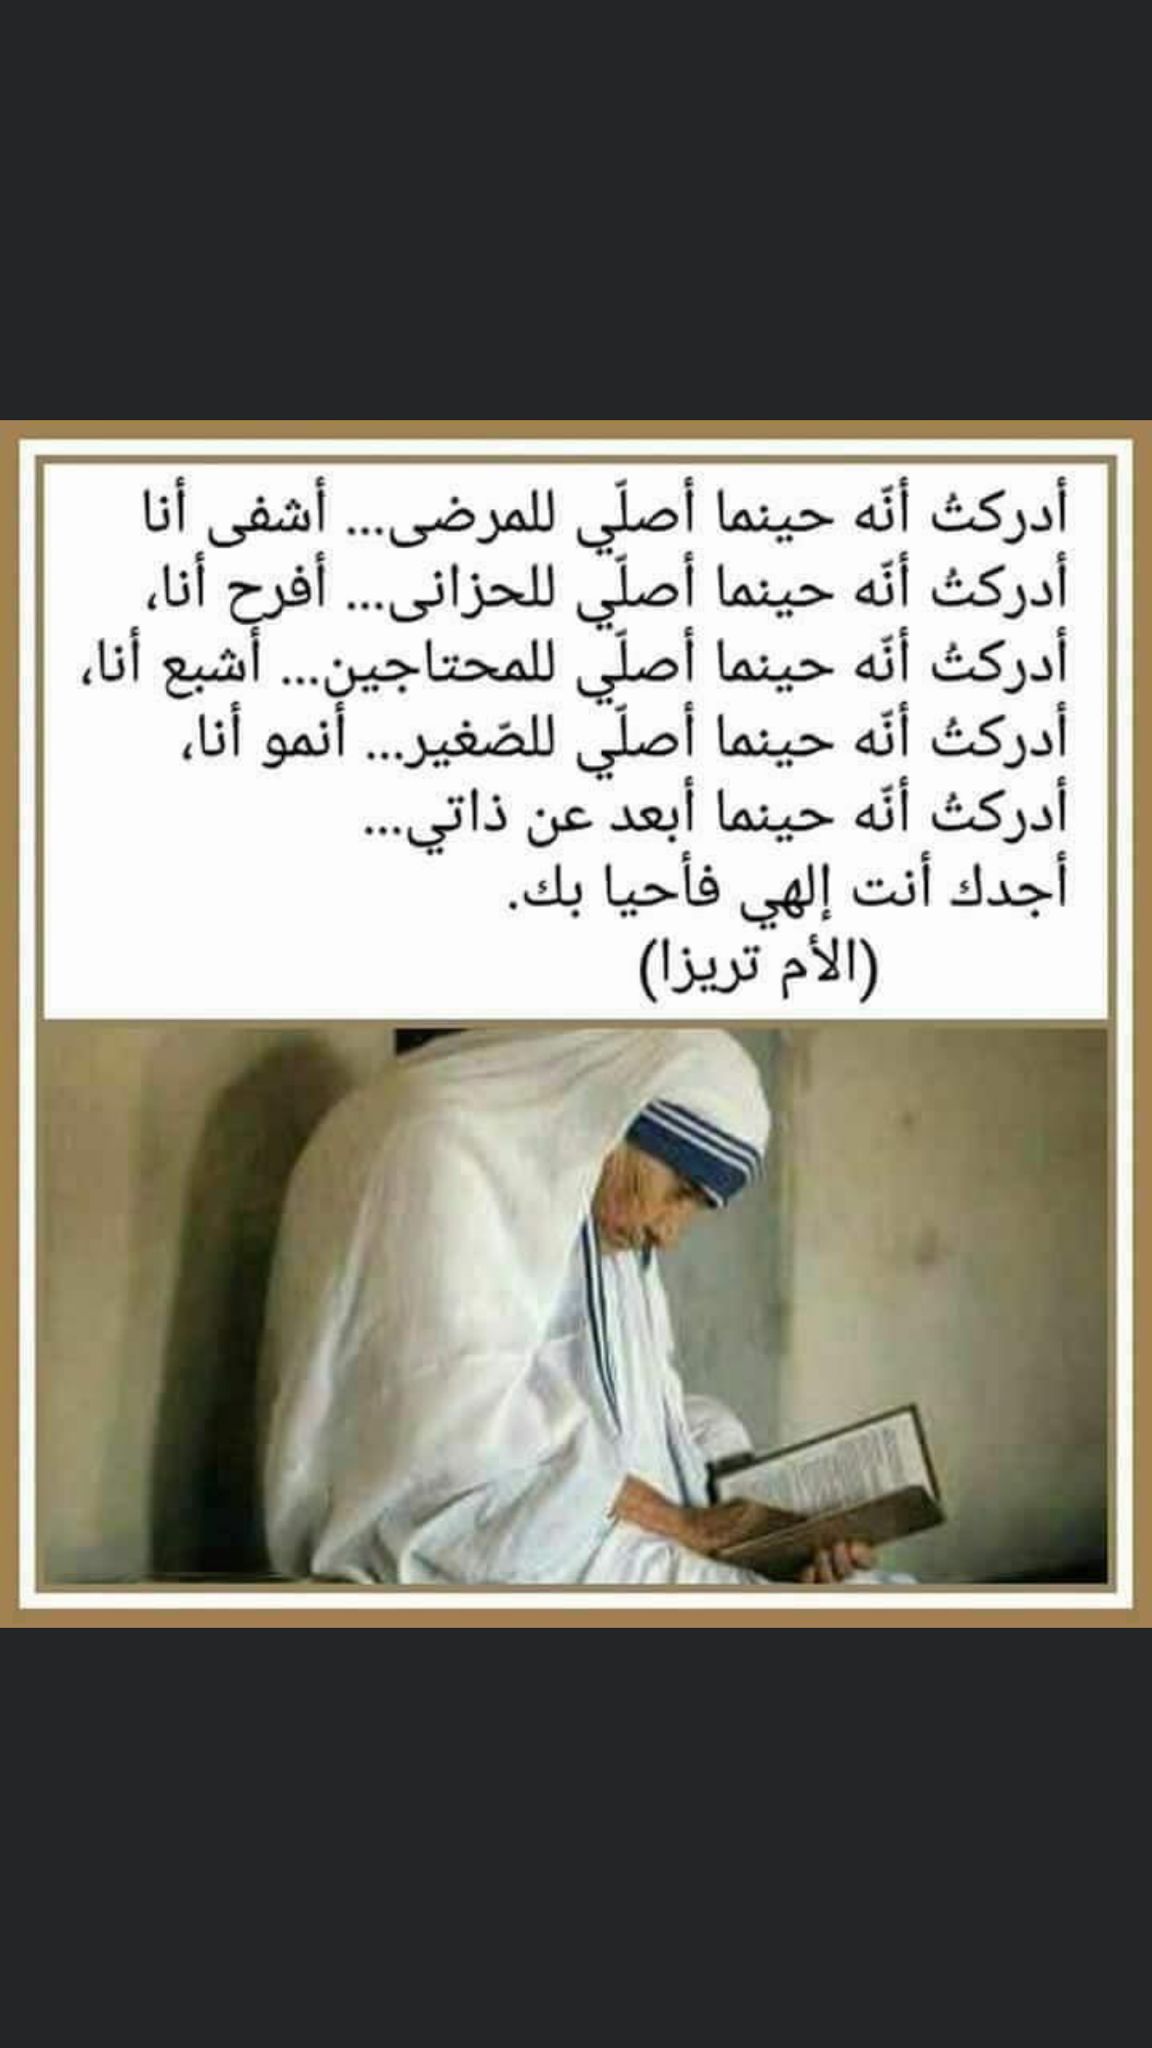 أدركتُ أنّه حينما أصلّي للمرضى... أشفى أنا
أدركتُ أنّه حينما أصلّي للحزانى... أفرح أنا،
أدركتُ أنّه حينما أصلّي للمحتاجين... أشبع أنا،
أدركتُ أنّه حينما أصلّي للصَغير... أنمو أنا،
أدركتُ أنّه حينما أبعد عن ذاتي...
أجدك أنت إلهي فأحيا بك.
(الأم تريزا)